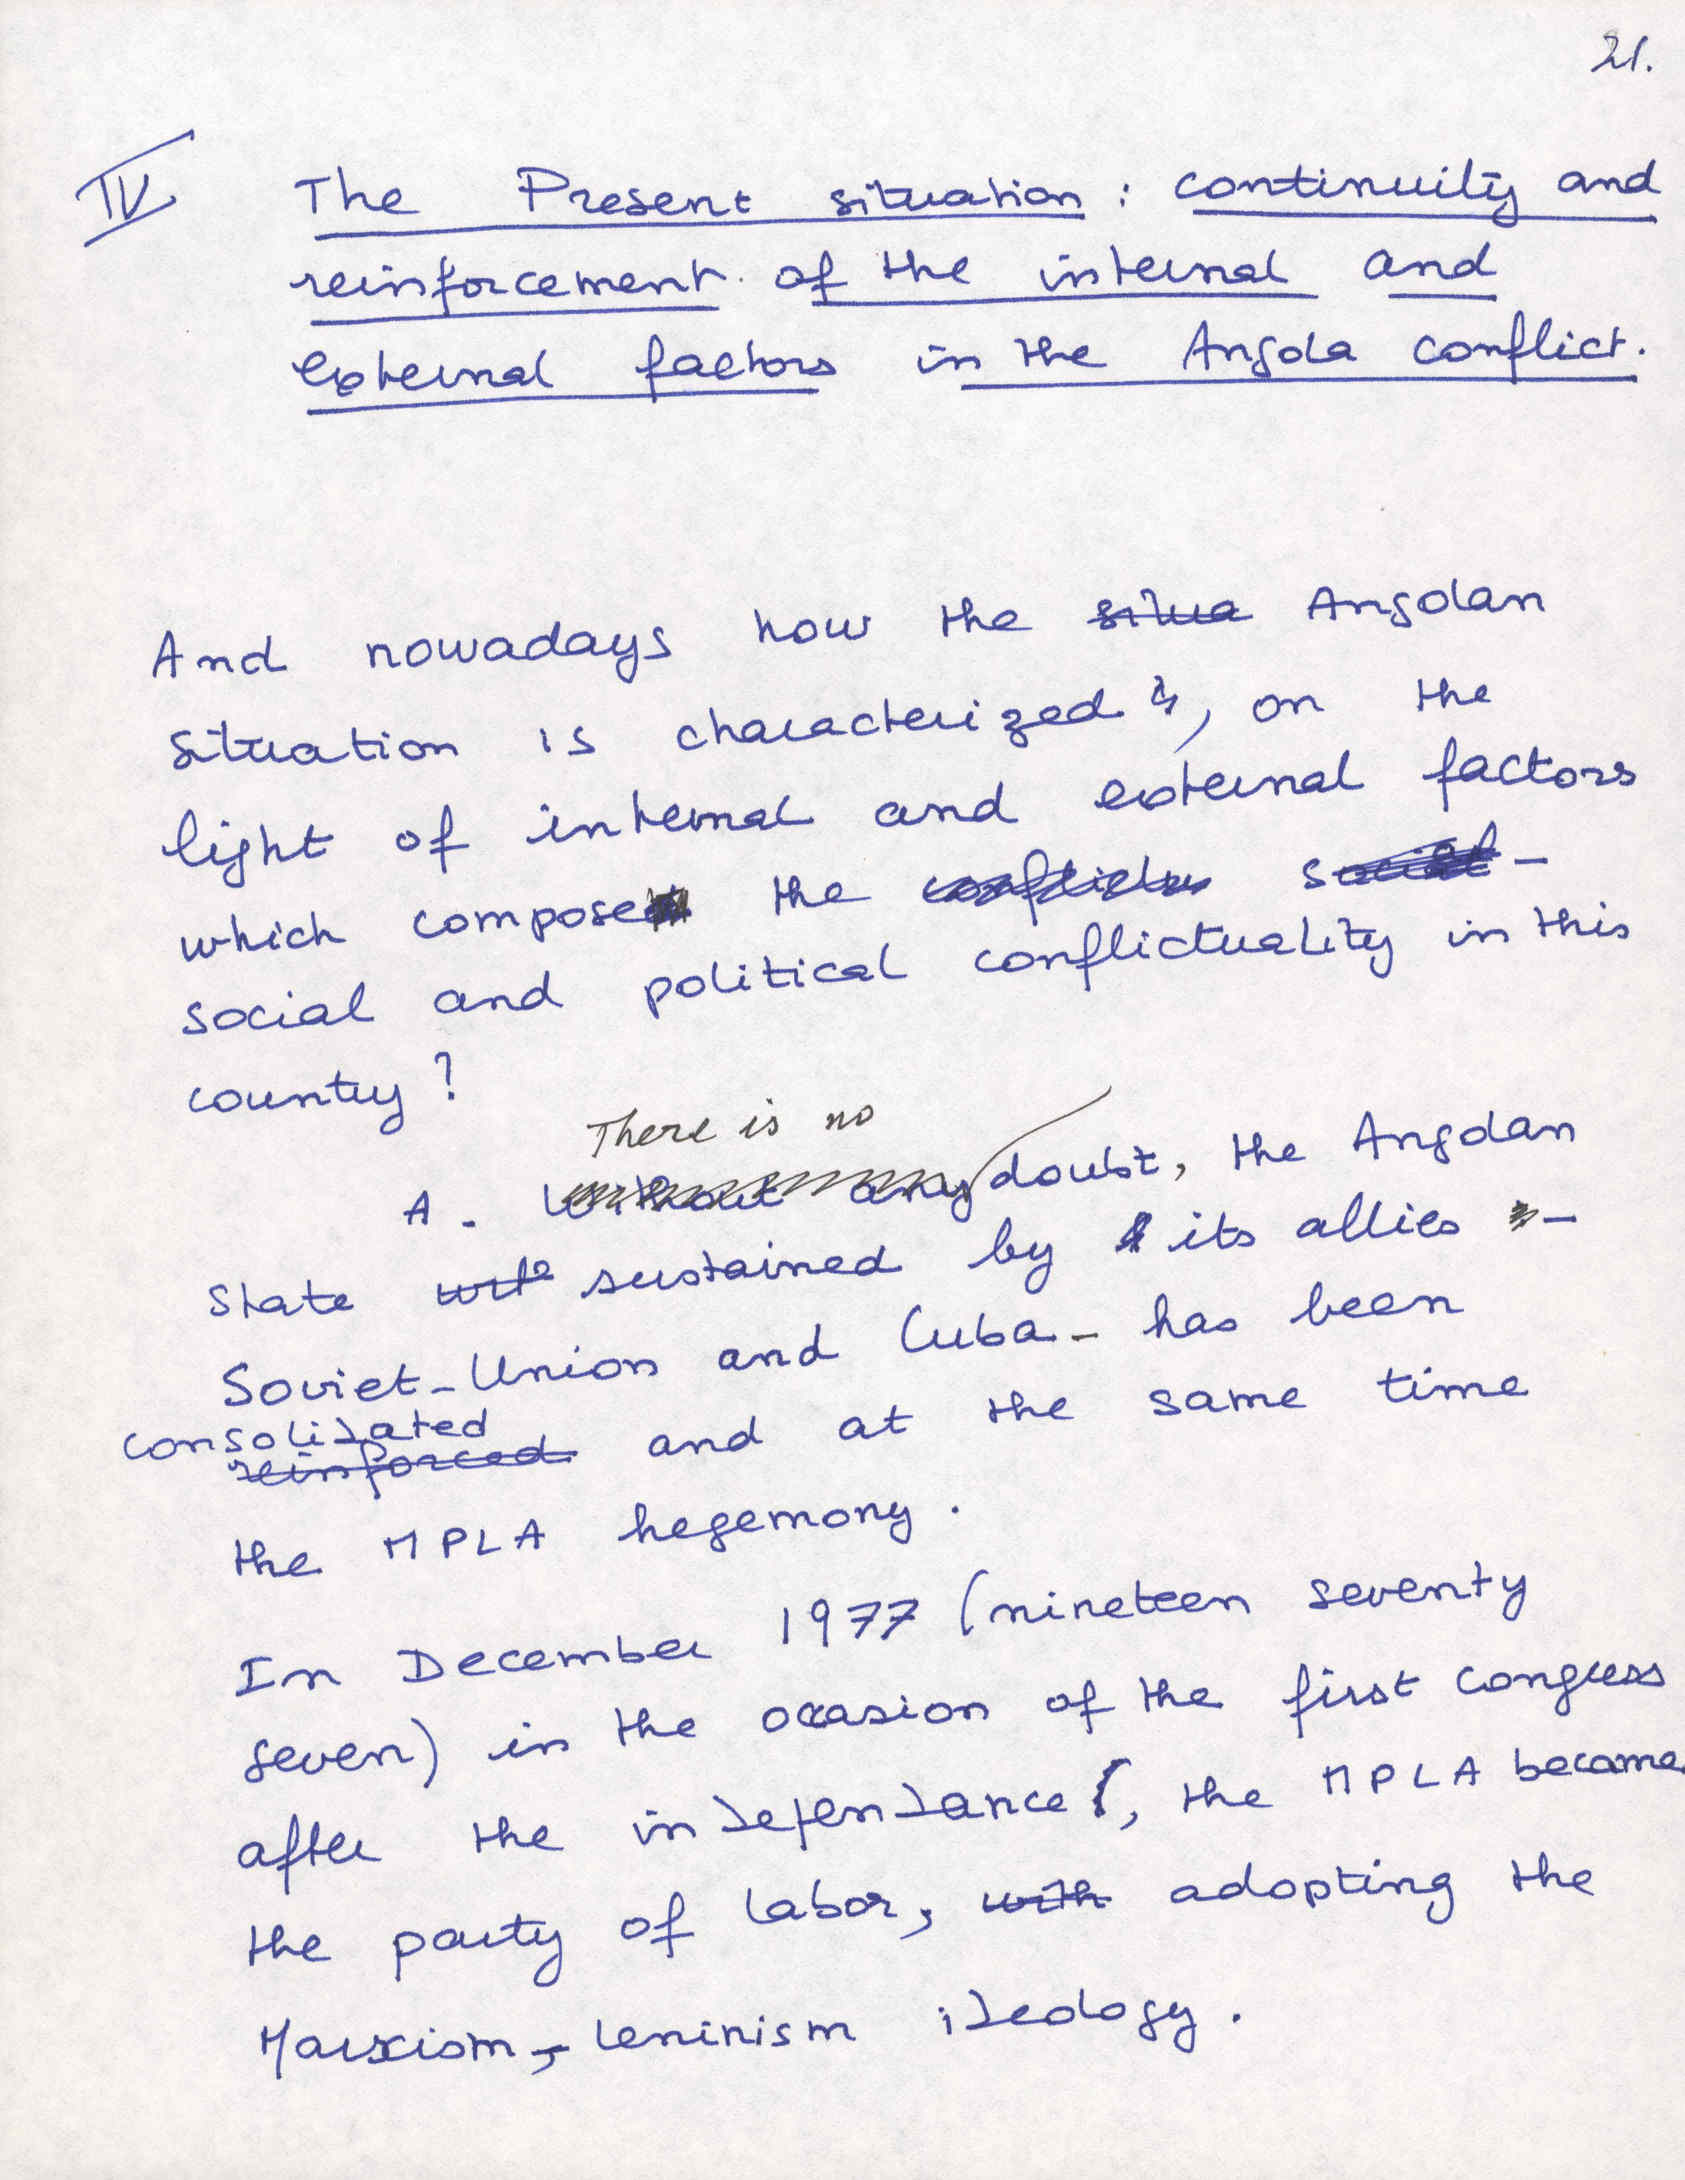 21.
IV The Present situation : continuity and
reinforcement of the internal and
external factors in the Angola conflict.
And nowadays how the situa Angolan
situation is characterized, on the
light of internal and external factors
which compose the conflictu social -
social and political conflictuality in this
country ?
There is no
A. Without any doubt, the Angolan
State with sustained by its allies -
Soviet-Union and Cuba - has been
consolidated
reinforced and at the same time
the MPLA hegemony.
In December 1977 (nineteen seventy
seven) in the occasion of the first congress
after the independance, the MPLA became
the party of labor, with adopting the
Marxism-leninism ideology.